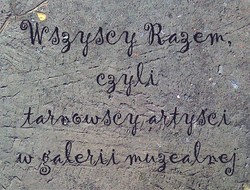 Wszyscy Razem,
czyli
tarnowscy artyści
w galerii muzealnej